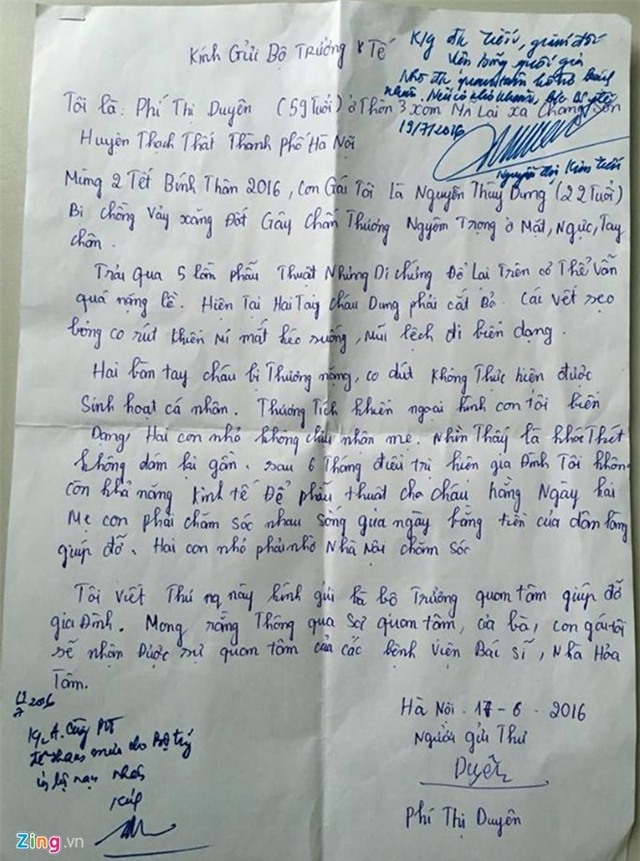 Kính Gửi Bộ Trưởng Y Tế
K/g đc Liêu, giám đốc
Viện bỏng quốc gia
Nhờ đc quan tâm hỗ trợ bệnh
nhân. Nếu có khó khăn, b/c Bộ Y tế
19/7/2016
Nguyễn Thị Kim Tiến
Tôi là: Phí Thị Duyên (59 Tuổi) ở Thôn 3 xóm Mơ Lai xa Chàng Sơn
Huyện Thạch Thất Thành phố Hà Nội
Mùng 2 Tết Bính Thân 2016, Con Gái Tôi là Nguyễn Thùy Dung (22 Tuổi)
Bi chồng Vảy xăng Đốt Gây Chấn Thương Ngyêm Trọng ở Mặt, Ngực, Tay
chân.
Trải Qua 5 lần phẫu Thuật Nhưng Di chứng Để Lai Trên cơ Thể vẫn
quá nặng lề. Hiện Tai Hai Tai cháu Dung phải cắt Bỏ. Các vết sẹo
bỏng co rút khiến mí mắt kéo xuống, mũi lệch đi biến dạng.
Hai bàn tay cháu bị Thương nặng, co dút không Thực hiện được
Sinh hoạt cá nhân. Thương Tích khiến ngoai hình con tôi biến
Dạng, Hai con nhỏ không chịu nhân mẹ. Nhìn Thấy là khóc Thét
không dám lại gần. sau 6 Tháng điều trị hiện gia Đình Tôi không
còn khả năng kinh tế Để phẫu thuật cho cháu hằng Ngày hai
Mẹ con phải chăm sóc nhau sống qua ngày bằng tiền của dân làng
giúp đỡ. Hai con nhỏ phải nhờ Nhà Nội chăm sóc
Tôi viết Thư này kính gửi bà bộ Trưởng quan tâm giúp đỡ
gia Đình. Mong rằng Thông qua Sự quan tâm, của bà, con gái tôi
sẽ nhận Được sự quan tâm của các bệnh viện Bác sĩ, Nhà Hảo
Tâm.
Hà Nôi . 17 - 6 . 2016
Người gửi Thư
Duyên
Phí Thị Duyên
2016
Zing.vn